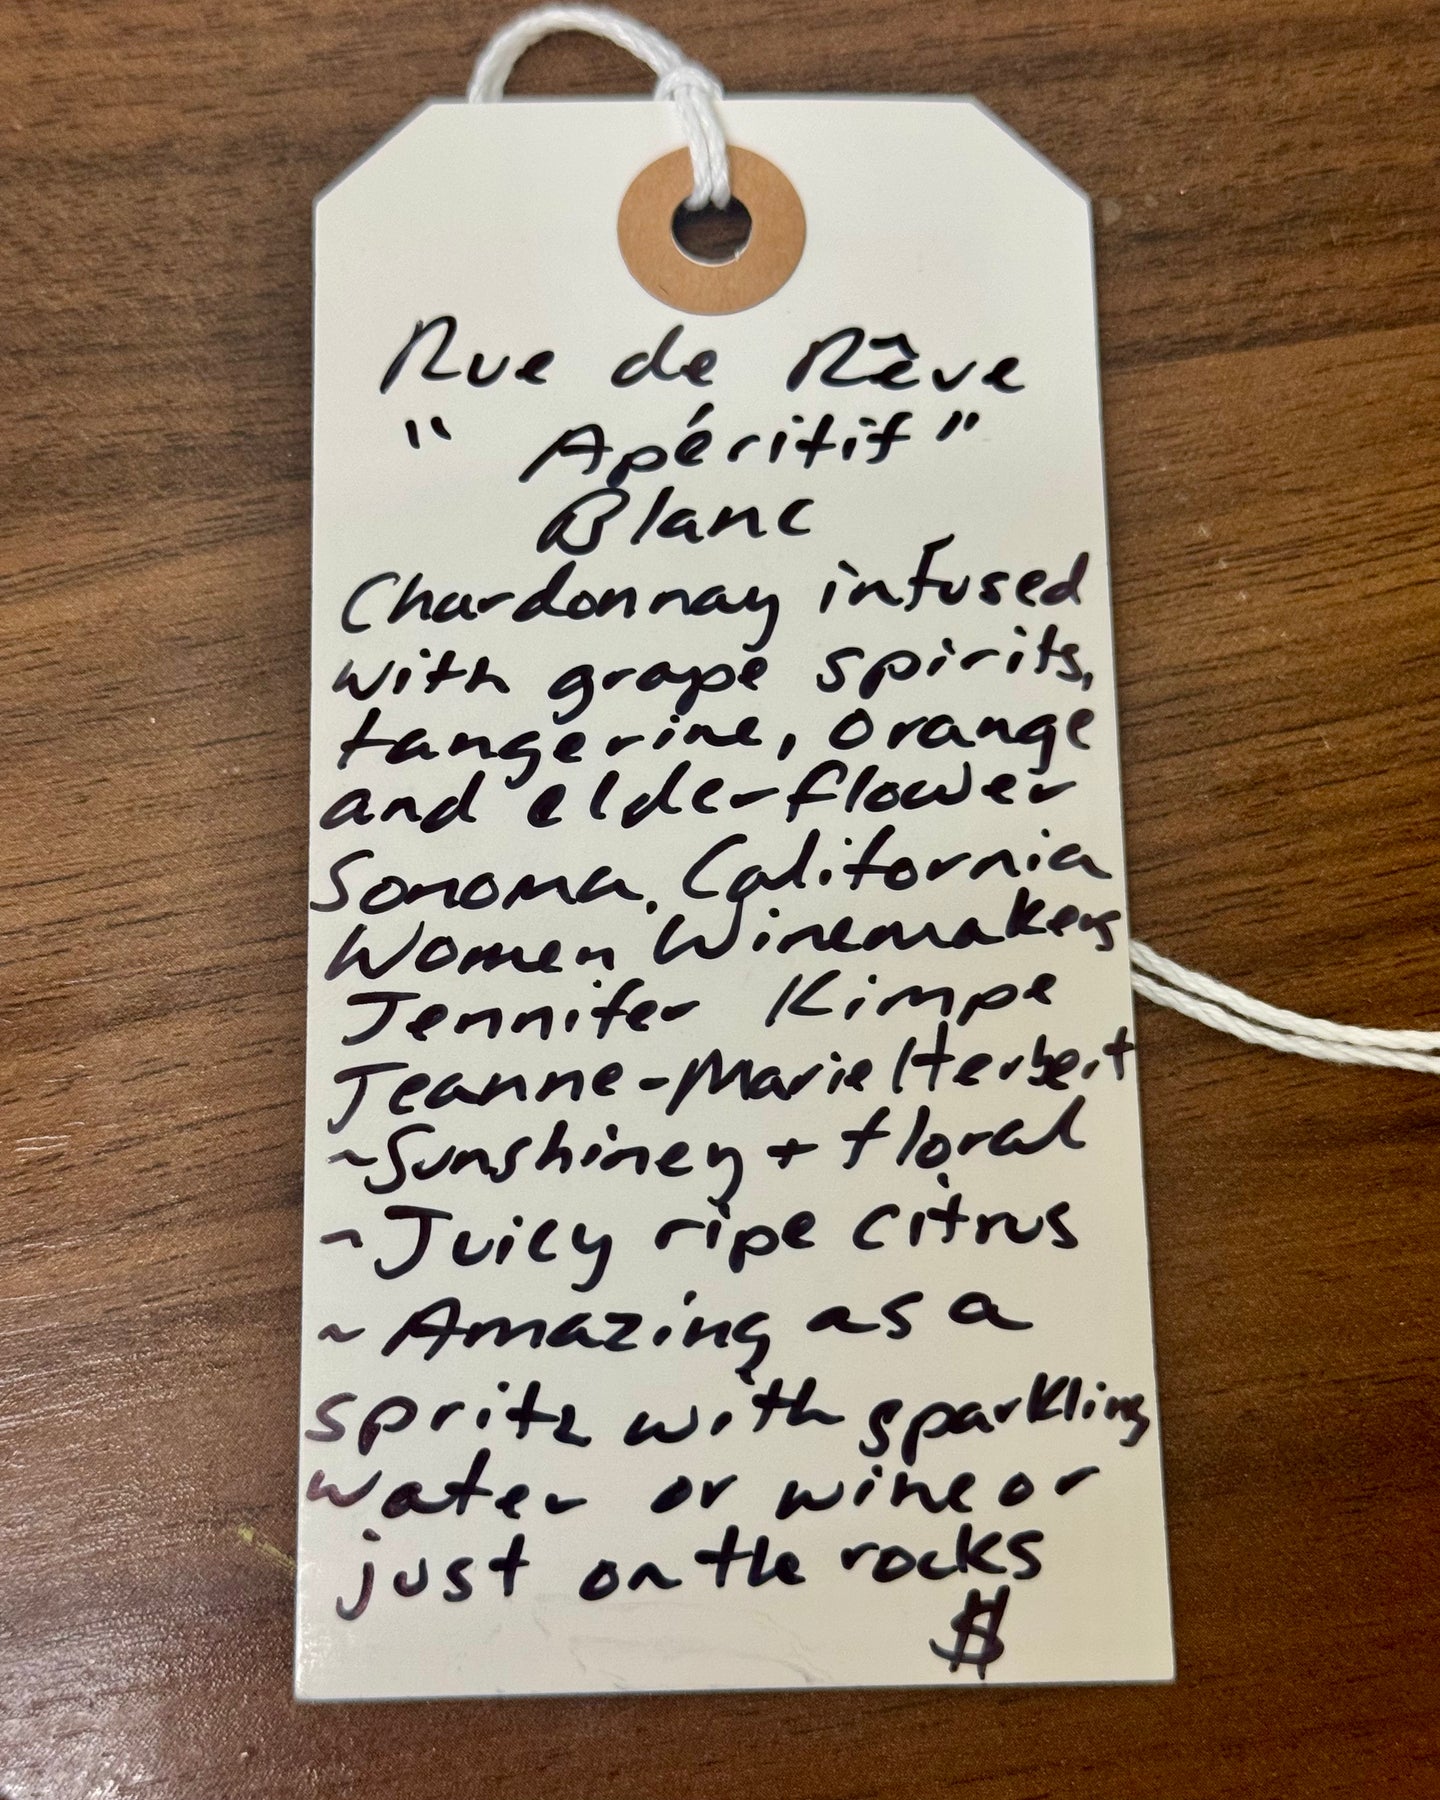 Rue de Rêve
"Apéritif"
Blanc
Chardonnay infused
with grape spirits,
tangerine, orange
and elderflower
Sonoma, California
Women Winemakers
Jennifer Kimpe
Jeanne-Marie Herbert
~Sunshiney + floral
~Juicy ripe citrus
~Amazing as a
spritz with sparkling
water or wine or
just on the rocks
$